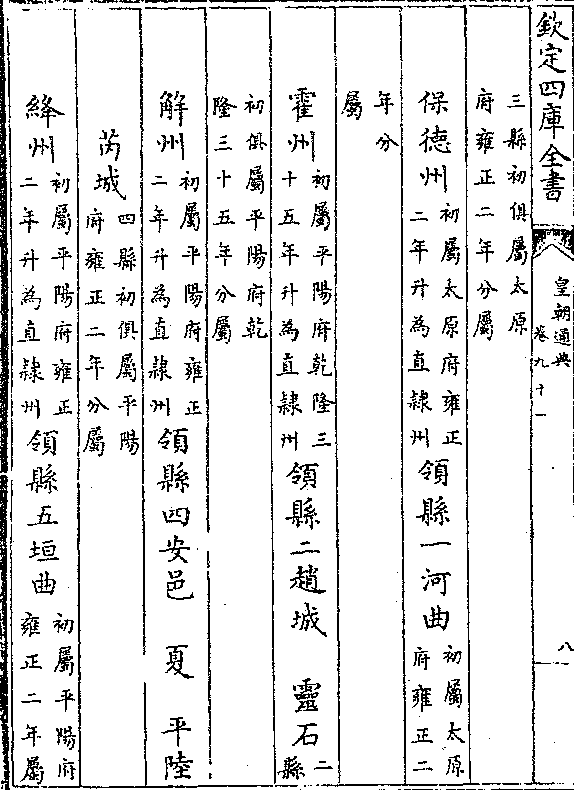 欽定四庫全書
皇朝通典
卷九十一
八
三縣初俱屬太原
府雍正二年分屬
保德州初屬太原府雍正
二年升為直隸州領縣一河曲初屬太原
府雍正二
年分
屬
霍州初屬平陽府乾隆三
十五年升為直隸州領縣二趙城 靈石二
縣
初俱屬平陽府乾
隆三十五年分屬
解州初屬平陽府雍正
二年升為直隸州領縣四安邑 夏 平陸
芮城四縣初俱屬平陽
府雍正二年分屬
絳州初屬平陽府雍正
二年升為直隸州領縣五垣曲初屬平陽府
雍正二年屬